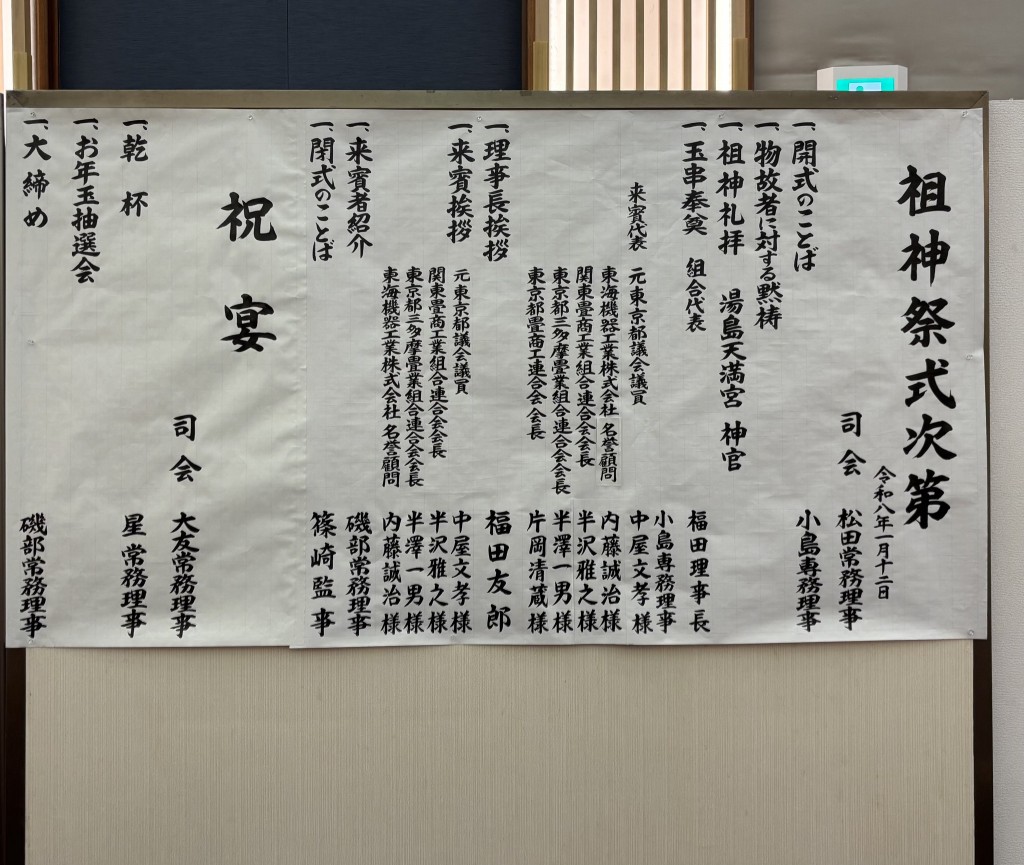 祖神祭式次第
令和八年一月十二日
司会 松田常務理事
一、開式のことば 小島専務理事
一、物故者に対する黙祷
一、祖神礼拝 湯島天満宮 神官
一、玉串奉奠 組合代表 福田理事長
小島専務理事
来賓代表 元 東京都議会議員 中屋文孝様
東海機器工業株式会社 名誉顧問 内藤誠治様
関東畳商工業組合連合会会長 半沢雅之様
東京都三多摩畳業組合連合会会長 半澤一男様
東京都畳商工連合会 会長 片岡清蔵様
一、理事長挨拶 福田友郎
一、来賓挨拶 元 東京都議会議員 中屋文孝様
関東畳商工業組合連合会会長 半沢雅之様
東京都三多摩畳業組合連合会会長 半澤一男様
東海機器工業株式会社 名誉顧問 内藤誠治様
一、来賓者紹介 磯部常務理事
一、閉式のことば 篠崎監事
祝宴
司会 大友常務理事
一、乾杯 星常務理事
一、お年玉抽選会
一、大締め 磯部常務理事